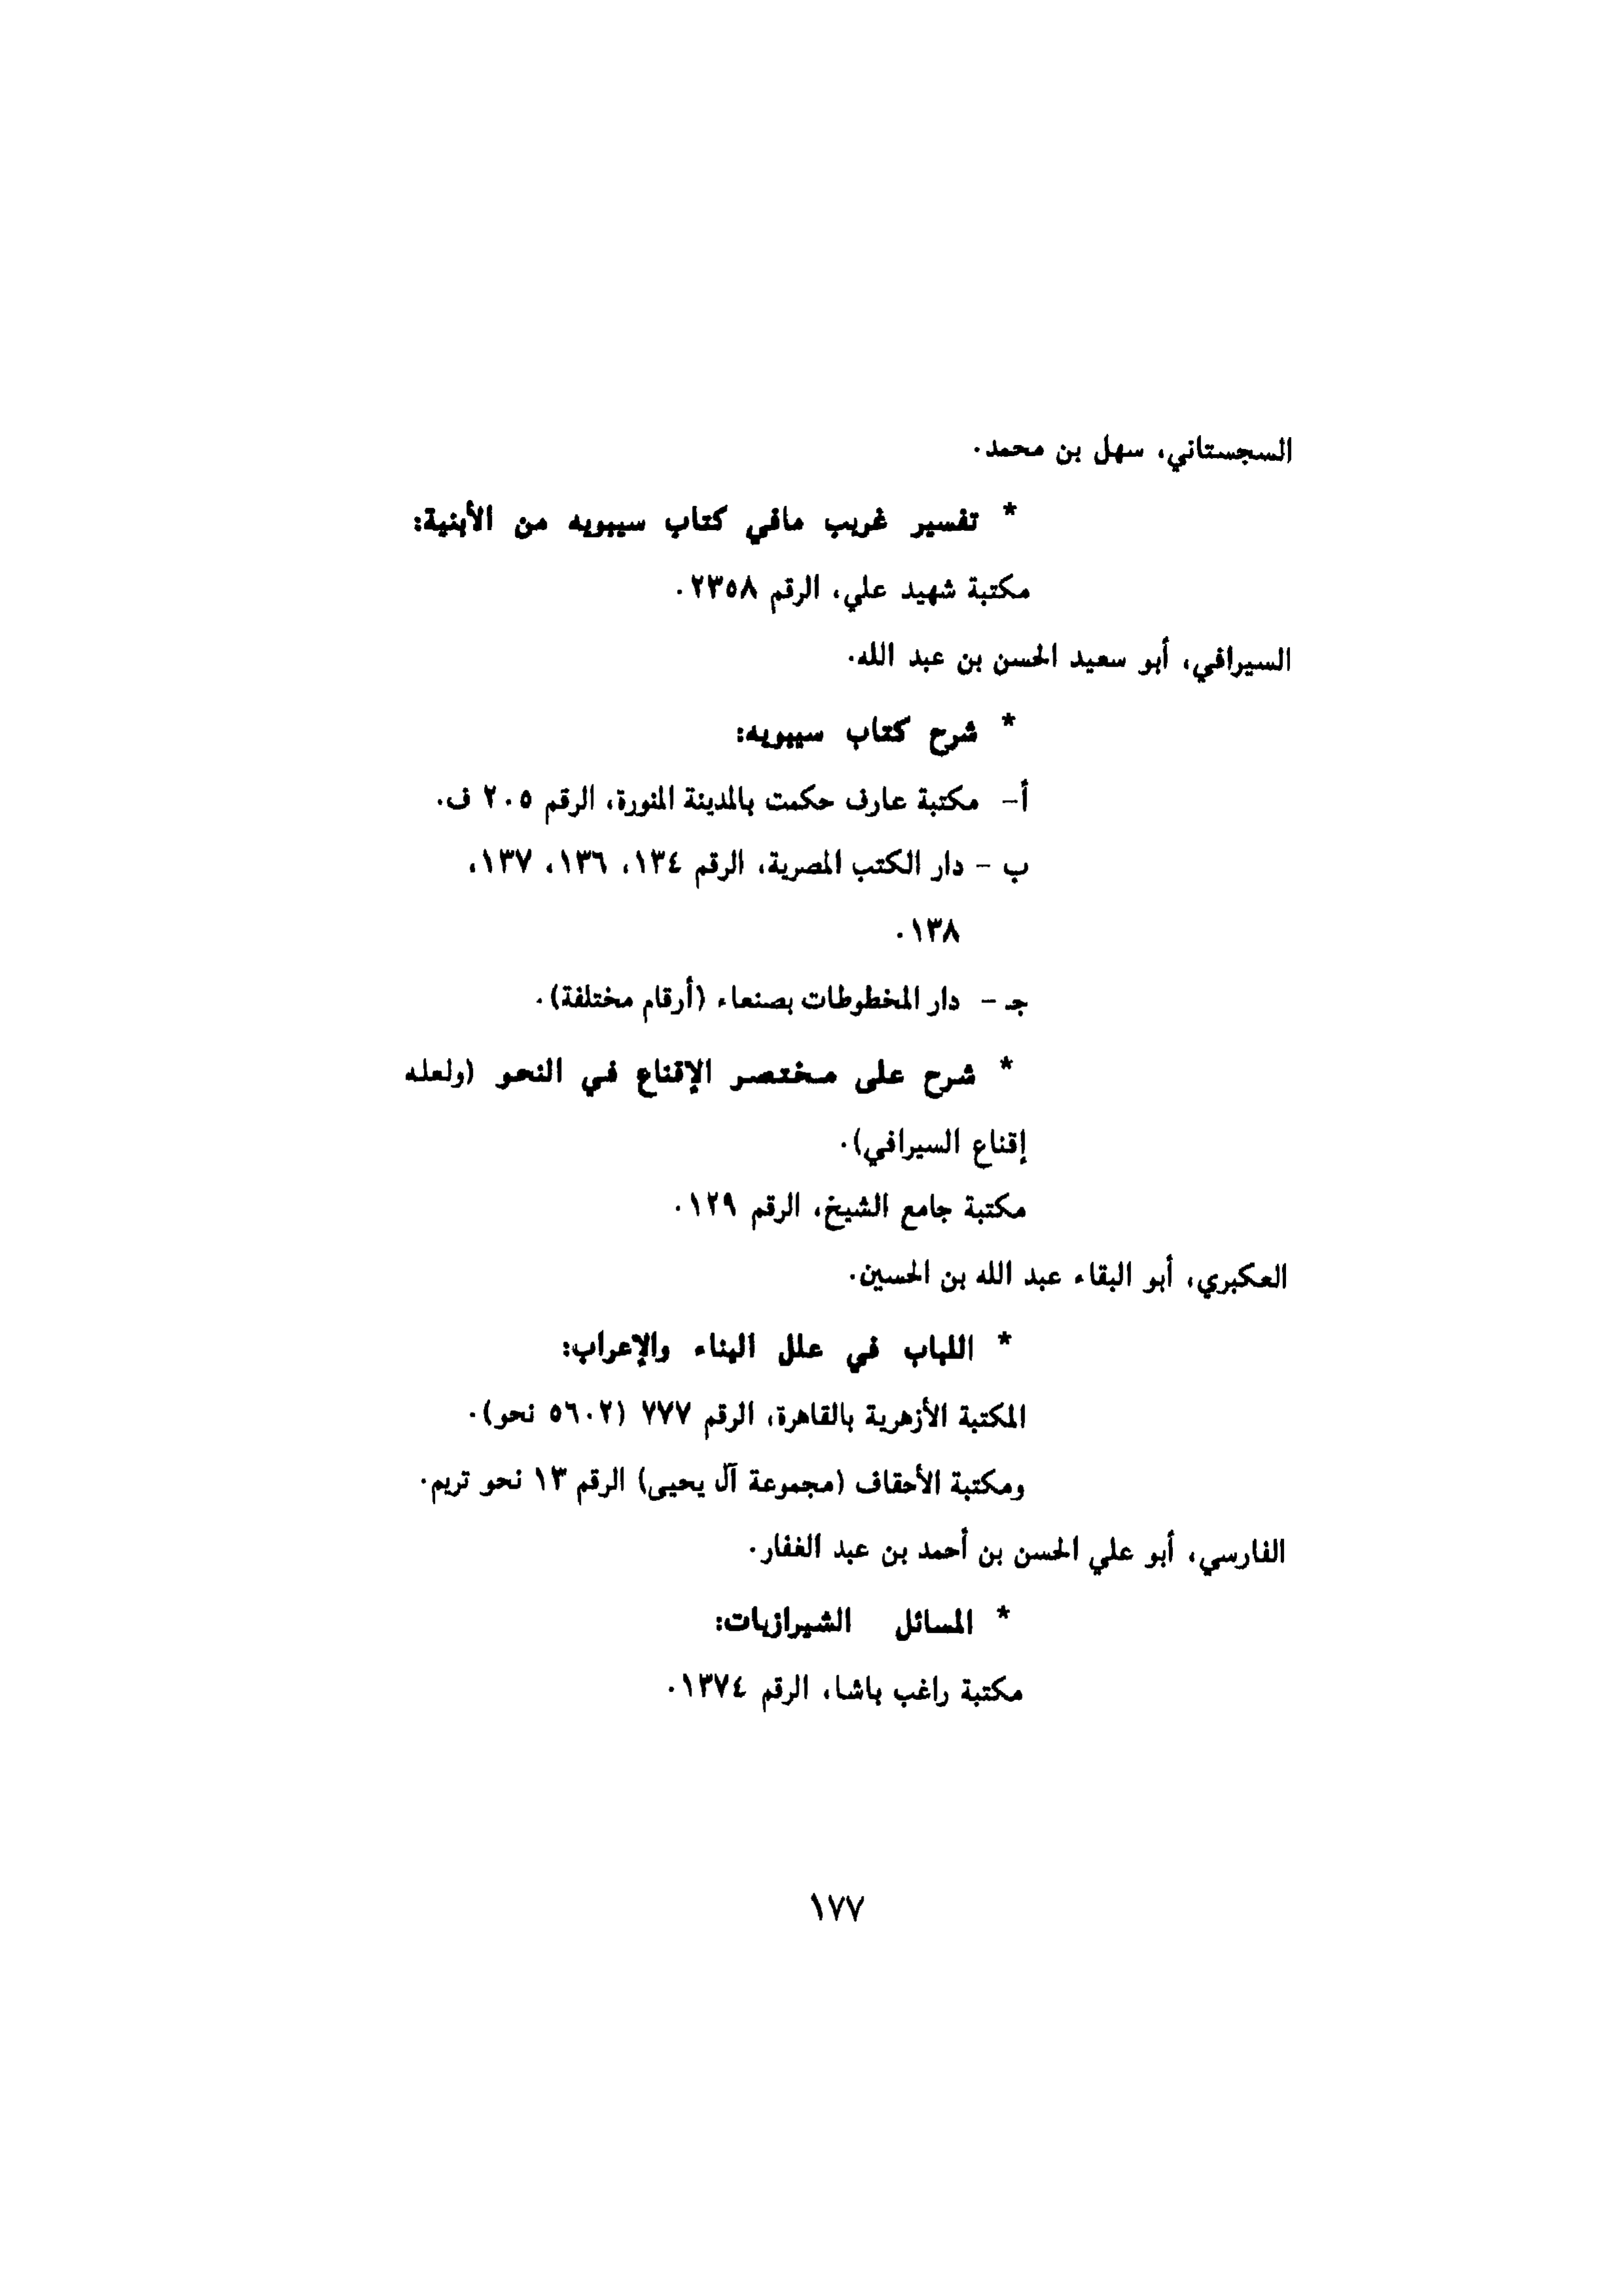 السجستاني، سهل بن محمد.
* تفسير غريب مافي كتاب سيبويه من الأبنية:
مكتبة شهيد علي، الرقم ٢٣٥٨.
السيرافي، أبو سعيد الحسن بن عبد الله.
* شرح كتاب سيبويه:
أ- مكتبة عارف حكمت بالمدينة المنورة، الرقم ٢٠٥ ف.
ب - دار الكتب المصرية، الرقم ١٣٤، ١٣٦، ١٣٧،
١٣٨.
جـ - دار المخطوطات بصنعاء (أرقام مختلفة).
* شرح على مختصر الإقناع في النحو (ولعله
إقناع السيرافي).
مكتبة جامع الشيخ، الرقم ١٢٩.
العكبري، أبو البقاء عبد الله بن الحسين.
* اللباب في علل البناء والإعراب:
المكتبة الأزهرية بالقاهرة، الرقم ٧٧٧ (٥٦٠٢ نحو).
ومكتبة الأحقاف (مجموعة آل يحيى) الرقم ١٣ نحو تريم.
الفارسي، أبو علي الحسن بن أحمد بن عبد الغفار.
* المسائل الشيرازيات:
مكتبة راغب باشا، الرقم ١٣٧٤.
١٧٧